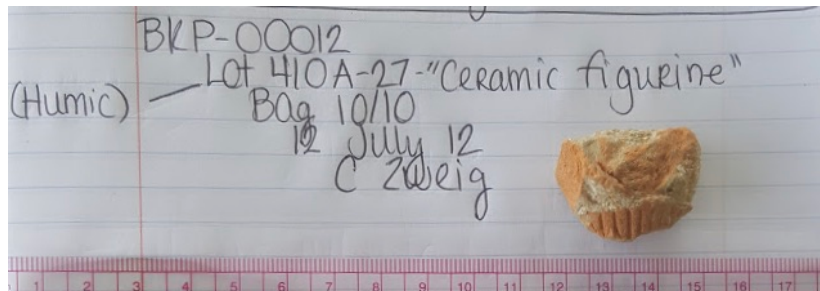 BKP-00012
Lot 410A-27-"Ceramic figurine"
(Humic)
Bag 10/10
12 July 12
C Zweig
1 2 3 4 5 6 7 8 9 10 11 12 13 14 15 16 17